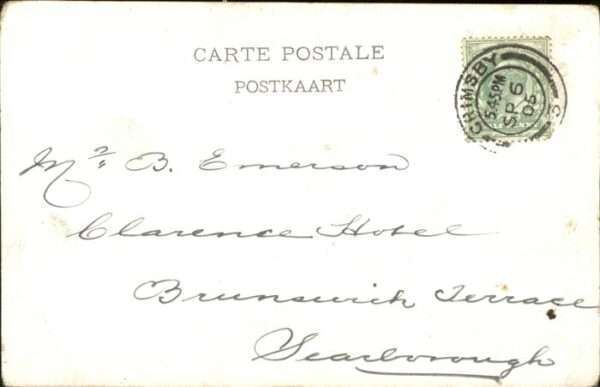 CARTE POSTALE
POSTKAART
GRIMSBY
5.45PM
SP 6
05
3
Mr B. Emerson
Clarence Hotel
Brunswick Terrace
Scarborough